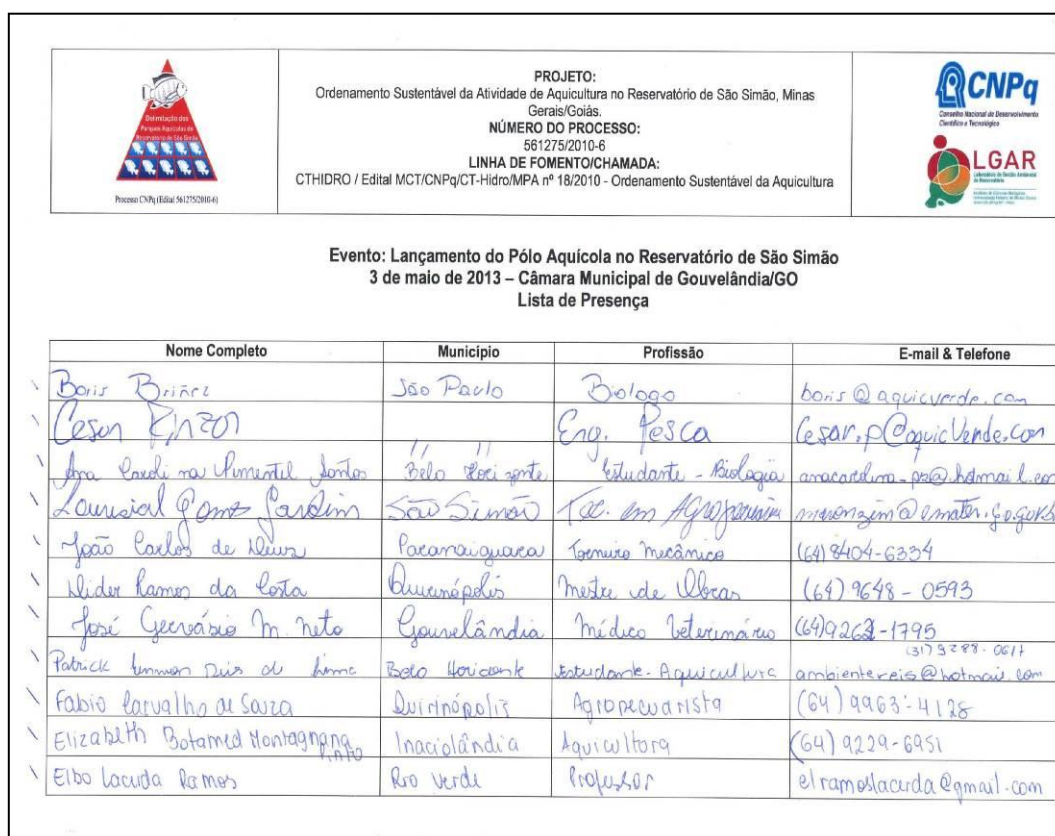 Delimitação dos
Parques Aquícolas do
Reservatório de São Simão
Processo CNPq (Edital 561275/2010-6)
PROJETO:
Ordenamento Sustentável da Atividade de Aquicultura no Reservatório de São Simão, Minas
Gerais/Goiás.
NÚMERO DO PROCESSO:
561275/2010-6
LINHA DE FOMENTO/CHAMADA:
CTHIDRO / Edital MCT/CNPq/CT-Hidro/MPA nº 18/2010 - Ordenamento Sustentável da Aquicultura
CNPq
Conselho Nacional de Desenvolvimento
Científico e Tecnológico
LGAR
Laboratório de Gestão Ambiental
de Reservatório
Evento: Lançamento do Pólo Aquícola no Reservatório de São Simão
3 de maio de 2013 – Câmara Municipal de Gouvelândia/GO
Lista de Presença
Nome Completo Município Profissão E-mail & Telefone
Boris Briñez São Paulo Biologo boris@aquicverde.com
Cesar Pinzon " " Eng. Pesca Cesar.p@aquicVerde.com
Ana Carolina Pimentel Santos Belo Horizonte Estudante - Biologia anacarolina_ps@hotmail.com
Gomes Jardim São Simão Tec. em Agropecuária @emater.go.gov.b
João Carlos de Deus Paranaiguara Torneiro Mecânico (64) 8404-6334
Ramos da Costa Quirinópolis Mestre de Obras (64) 9648-0593
José Gervásio M. Neto Gouvelândia Médico Veterinário (64)9262-1795
(31) 3288-0617
Patrick Reis de Lima Belo Horizonte Estudante-Aquicultura ambientereis@hotmail.com
Fabio Carvalho de Souza Quirinópolis Agropecuarista (64) 9963-4128
Elizabeth Botamed Montagnana Pinto Inaciolândia Aquicultora (64) 9229-6951
Elbo Lacerda Ramos Rio Verde Professor elramoslacerda@gmail.com